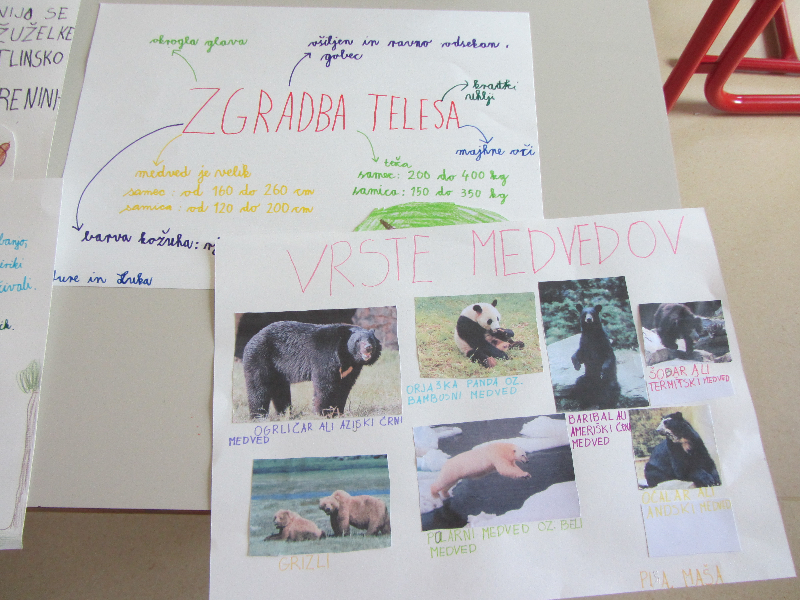 NIJO SE
ŽUŽELKE
TLINSKO
RENINI
okrogla glava
všiljen in ravno odsekan
gobec
ZGRADBA TELESA
kratki
uhlji
majhne oči
medved je velik
samec: od 160 do 260 cm
samica: od 120 do 200 cm
teža
samec: 200 do 400 kg
samica: 150 do 350 kg
barva kožuha:
Jure in Luka
VRSTE MEDVEDOV
OGRLIČAR ALI AZIJSKI ČRNI
MEDVED
ORJAŠKA PANDA OZ.
BAMBUSNI MEDVED
BARIBAL ALI
AMERIŠKI ČRNI
MEDVED
ŠOBAR ALI
TERMITSKI MEDVED
GRIZLI
POLARNI MEDVED OZ. BELI
MEDVED
OČALAR ALI
ANDSKI MEDVED
PISA: MAŠA